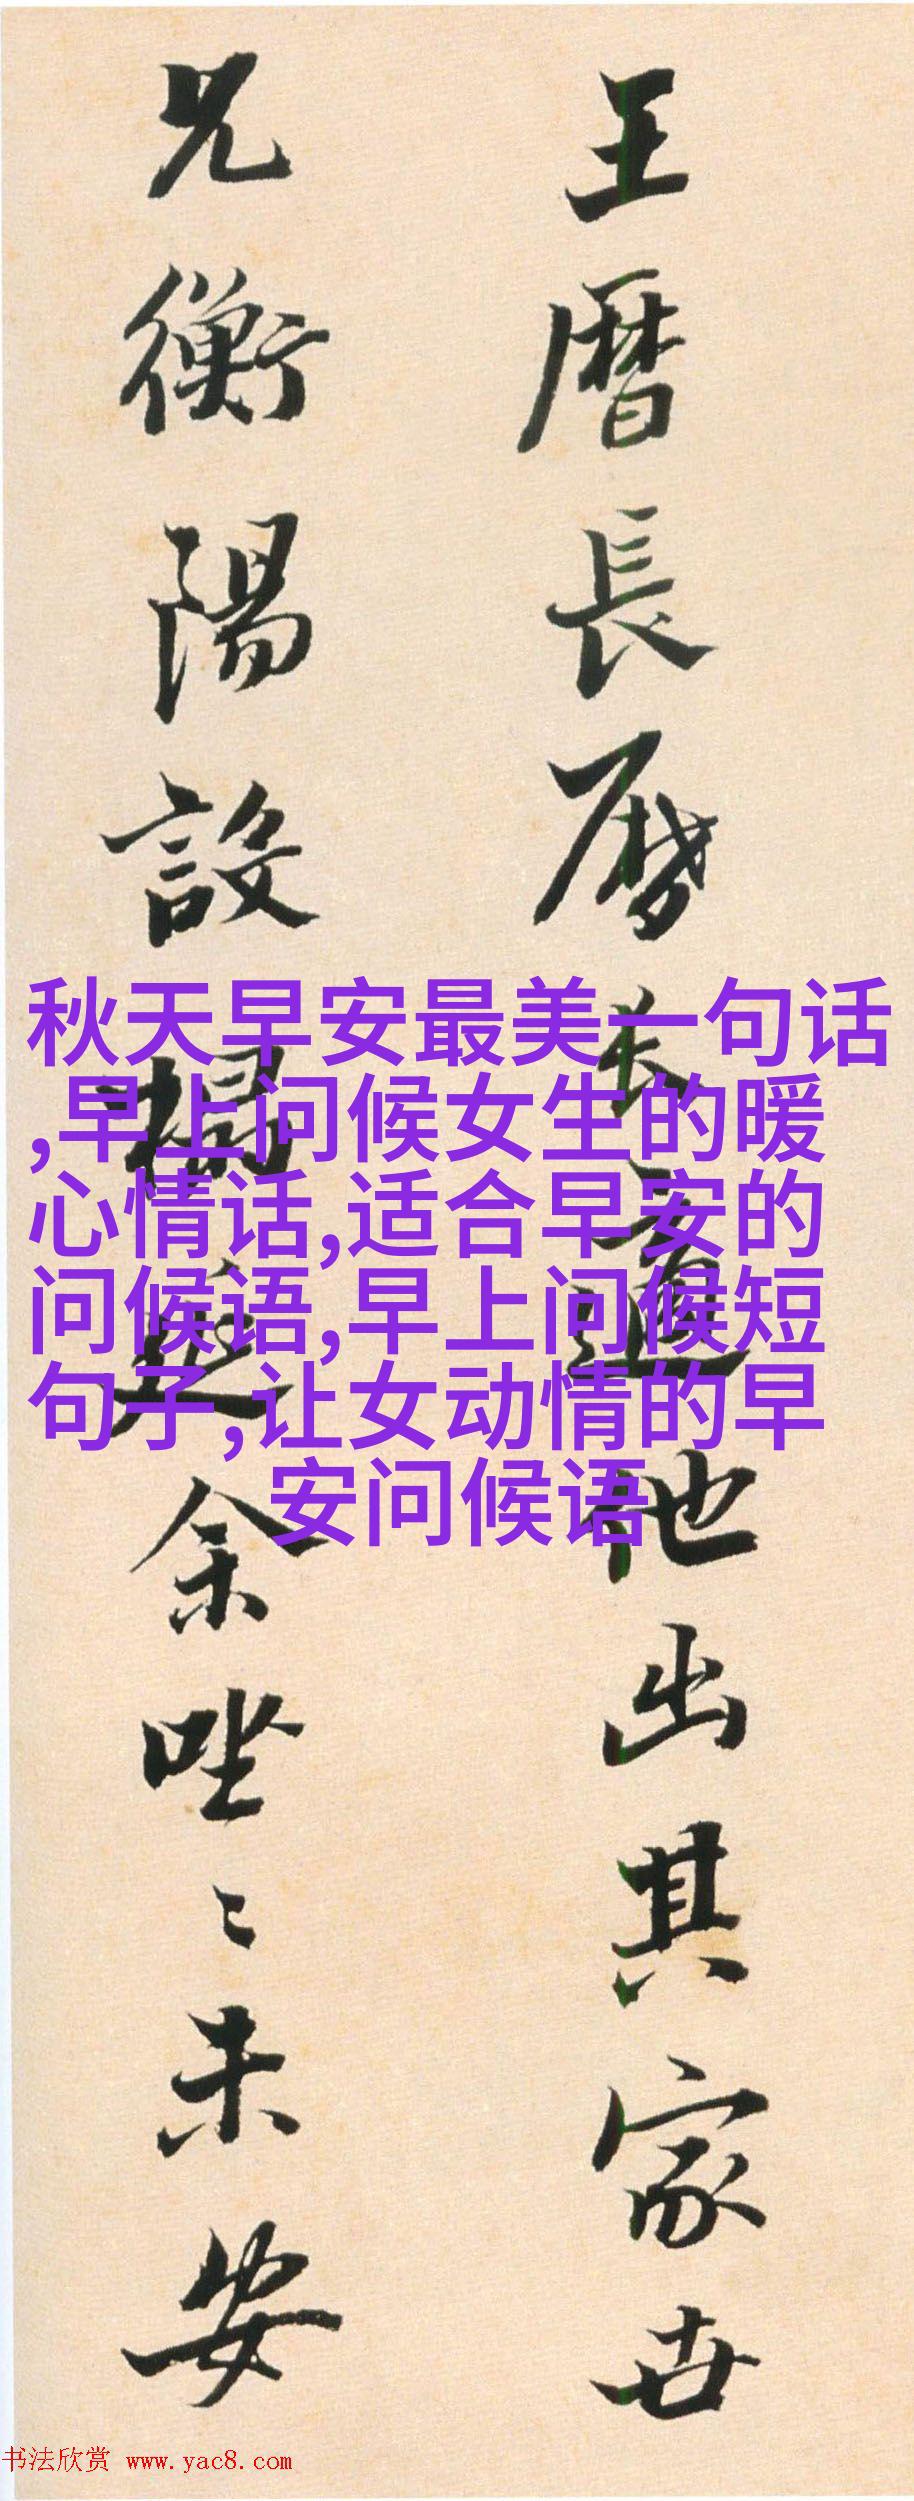 王曆長曆長適他出其家女
兄衡陽設榻延余坐〻未安
秋天早安最美一句话
,早上问候女生的暖
心情话,适合早安的
问候语,早上问候短
句子,让女动情的早
安问候语
书法欣赏 www.yac8.com